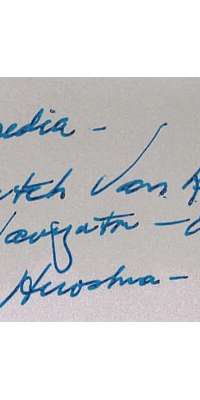 edia -
utch Van
Navigator -
Hiroshima -